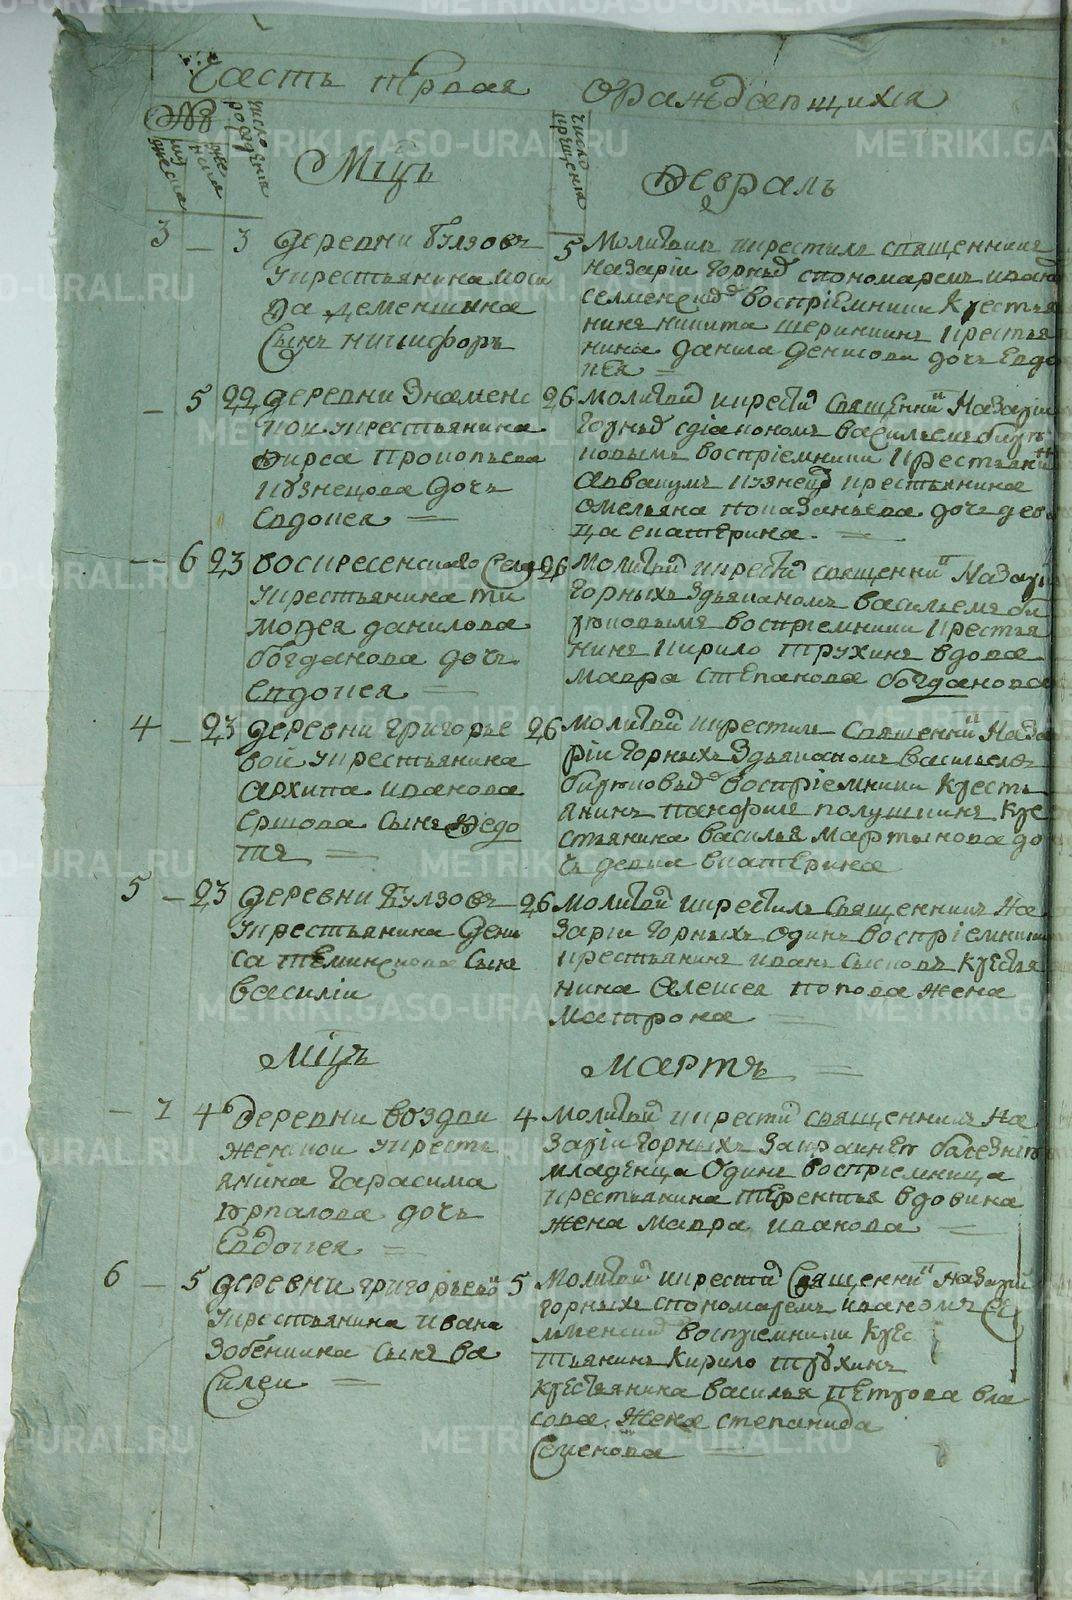 Часть первая
ораждающихся
№
мужеска
женска
число рождения
Мц҃ъ
число крещения
Февраль
3 – 3 деревни Булзовъ
у крестьянина
Деменшина
Сынъ Никифоръ
5 Молитвилъ икрестилъ священникъ
Назарiи Горных спономаремъ Иваномъ
воспрiемники крестья
нинъ Никита крестья
нина Данила Денисова дочь Евдо
кея
– 5 22 деревни Знаменс
кои укрестьянина
Фирса Прокопьева
Кузнецова дочь
Евдокея
26 Молитвил икрестил Священник Назарiи
Горных здiакономъ Васильемъ Бирю
ковымъ воспрiемники крестьянинъ
Аввакумъ Кузнецов крестьянина
Омельяна дочь деви
ца Екатерина
– 6 23 Воскресенскаго Села
укрестьянина Ти
мофея Данилова
Богданова дочь
Евдокея
26 Молитвил икрестил священник Назарiи
Горныхъ здьяканомъ Васильемъ Би
рюковымъ воспрiемники крестья
нинъ Кирило Трухинъ вдова
Мавра Степанова Богданова
4 – 23 деревни Григорье
вой укрестьянина
Архипа Иванова
Ершова Сынъ Федо
тъ
26 Молитвил икрестилъ Священник Наза
рiи Горныхъ Здьяканомъ Васильемъ
Бирюковым воспрiемники Кресть
янинъ Панфилъ Полушкинъ Кре
стьянина Василья Мартынова до
чь девка Екатерина
5 – 23 деревни Булзовъ
укрестьянина Дени
са Сынъ
Василiи
26 Молитвил икрестилъ Священникъ На
зарiи Горныхъ Одинъ воспрiемники
крестьянинъ Иванъ Крестья
нина Алексея Попова жена
Матрона
Мц҃ъ
Мартъ
– 7 4 деревни Воздви
женской укресть
янина Гарасима
дочь
Евдокея
4 Молитвил икрестил священникъ На
зарiи Горныхъ Закрайнею болезнiю
младенца Одинъ воспрiемница
крестьянина Терентья Вдовина
жена Мавра Иванова
6 – 5 деревни Григорьевой
укрестьянина Ивана
Зобенкина Сынъ Ва
Силеи
5 Молитвил икрестил Священник Назарiй
Горныхъ спономаремъ Иваномъ
воспрiемники Крес
тьянинъ Кирило Трухинъ
крестьянина Василья Петрова Вла
сова Жена Степанида
Семенова
METRIKI.GASO-URAL.RU